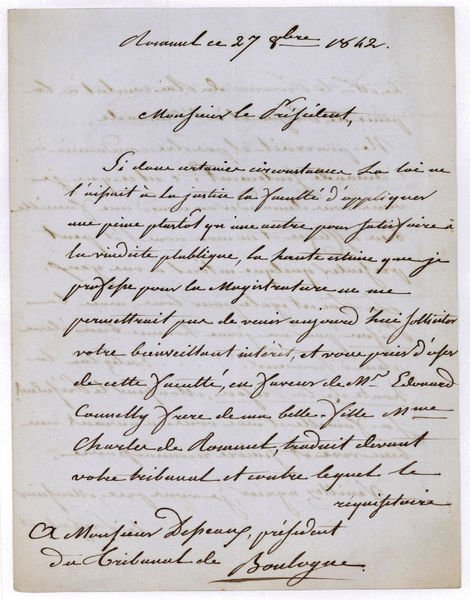 Rommel ce 27 8bre 1842.
Monsieur le Président,
Si dans certaines circonstances la loi ne
laissait à la justice la faculté d'appliquer
une peine plutôt qu'une autre pour satisfaire à
la vindicte publique, la haute estime que je
professe pour la Magistrature ne me
permettrait pas de venir aujourd'hui solliciter
votre bienveillant intérêt, et vous prier d'user
de cette faculté, en faveur de Mr. Edouard
Connelly frere de ma belle-fille Mme
Charles de Rommel, traduit devant
votre tribunal et contre lequel le
requisitoire
A Monsieur président
du Tribunal de Boulogne.